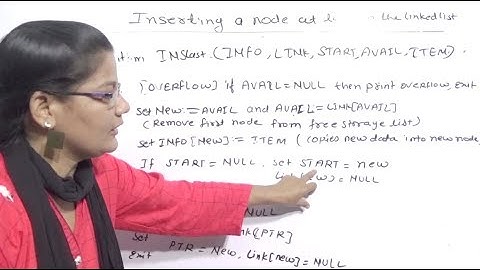 Inserting a node at the linked list
INSlast (INFO, LINK, START, AVAIL, ITEM).
[OVERFLOW] if AVAIL = NULL then print overflow, Exit
set New := AVAIL and AVAIL = LINK[AVAIL]
(Remove first node from free storage list)
set INFO[new] := ITEM (copies new data into new node)
If START = NULL. set START = new
= NULL
NULL
Set [PTR]
PTR = New, Link[new] = NULL
Exit